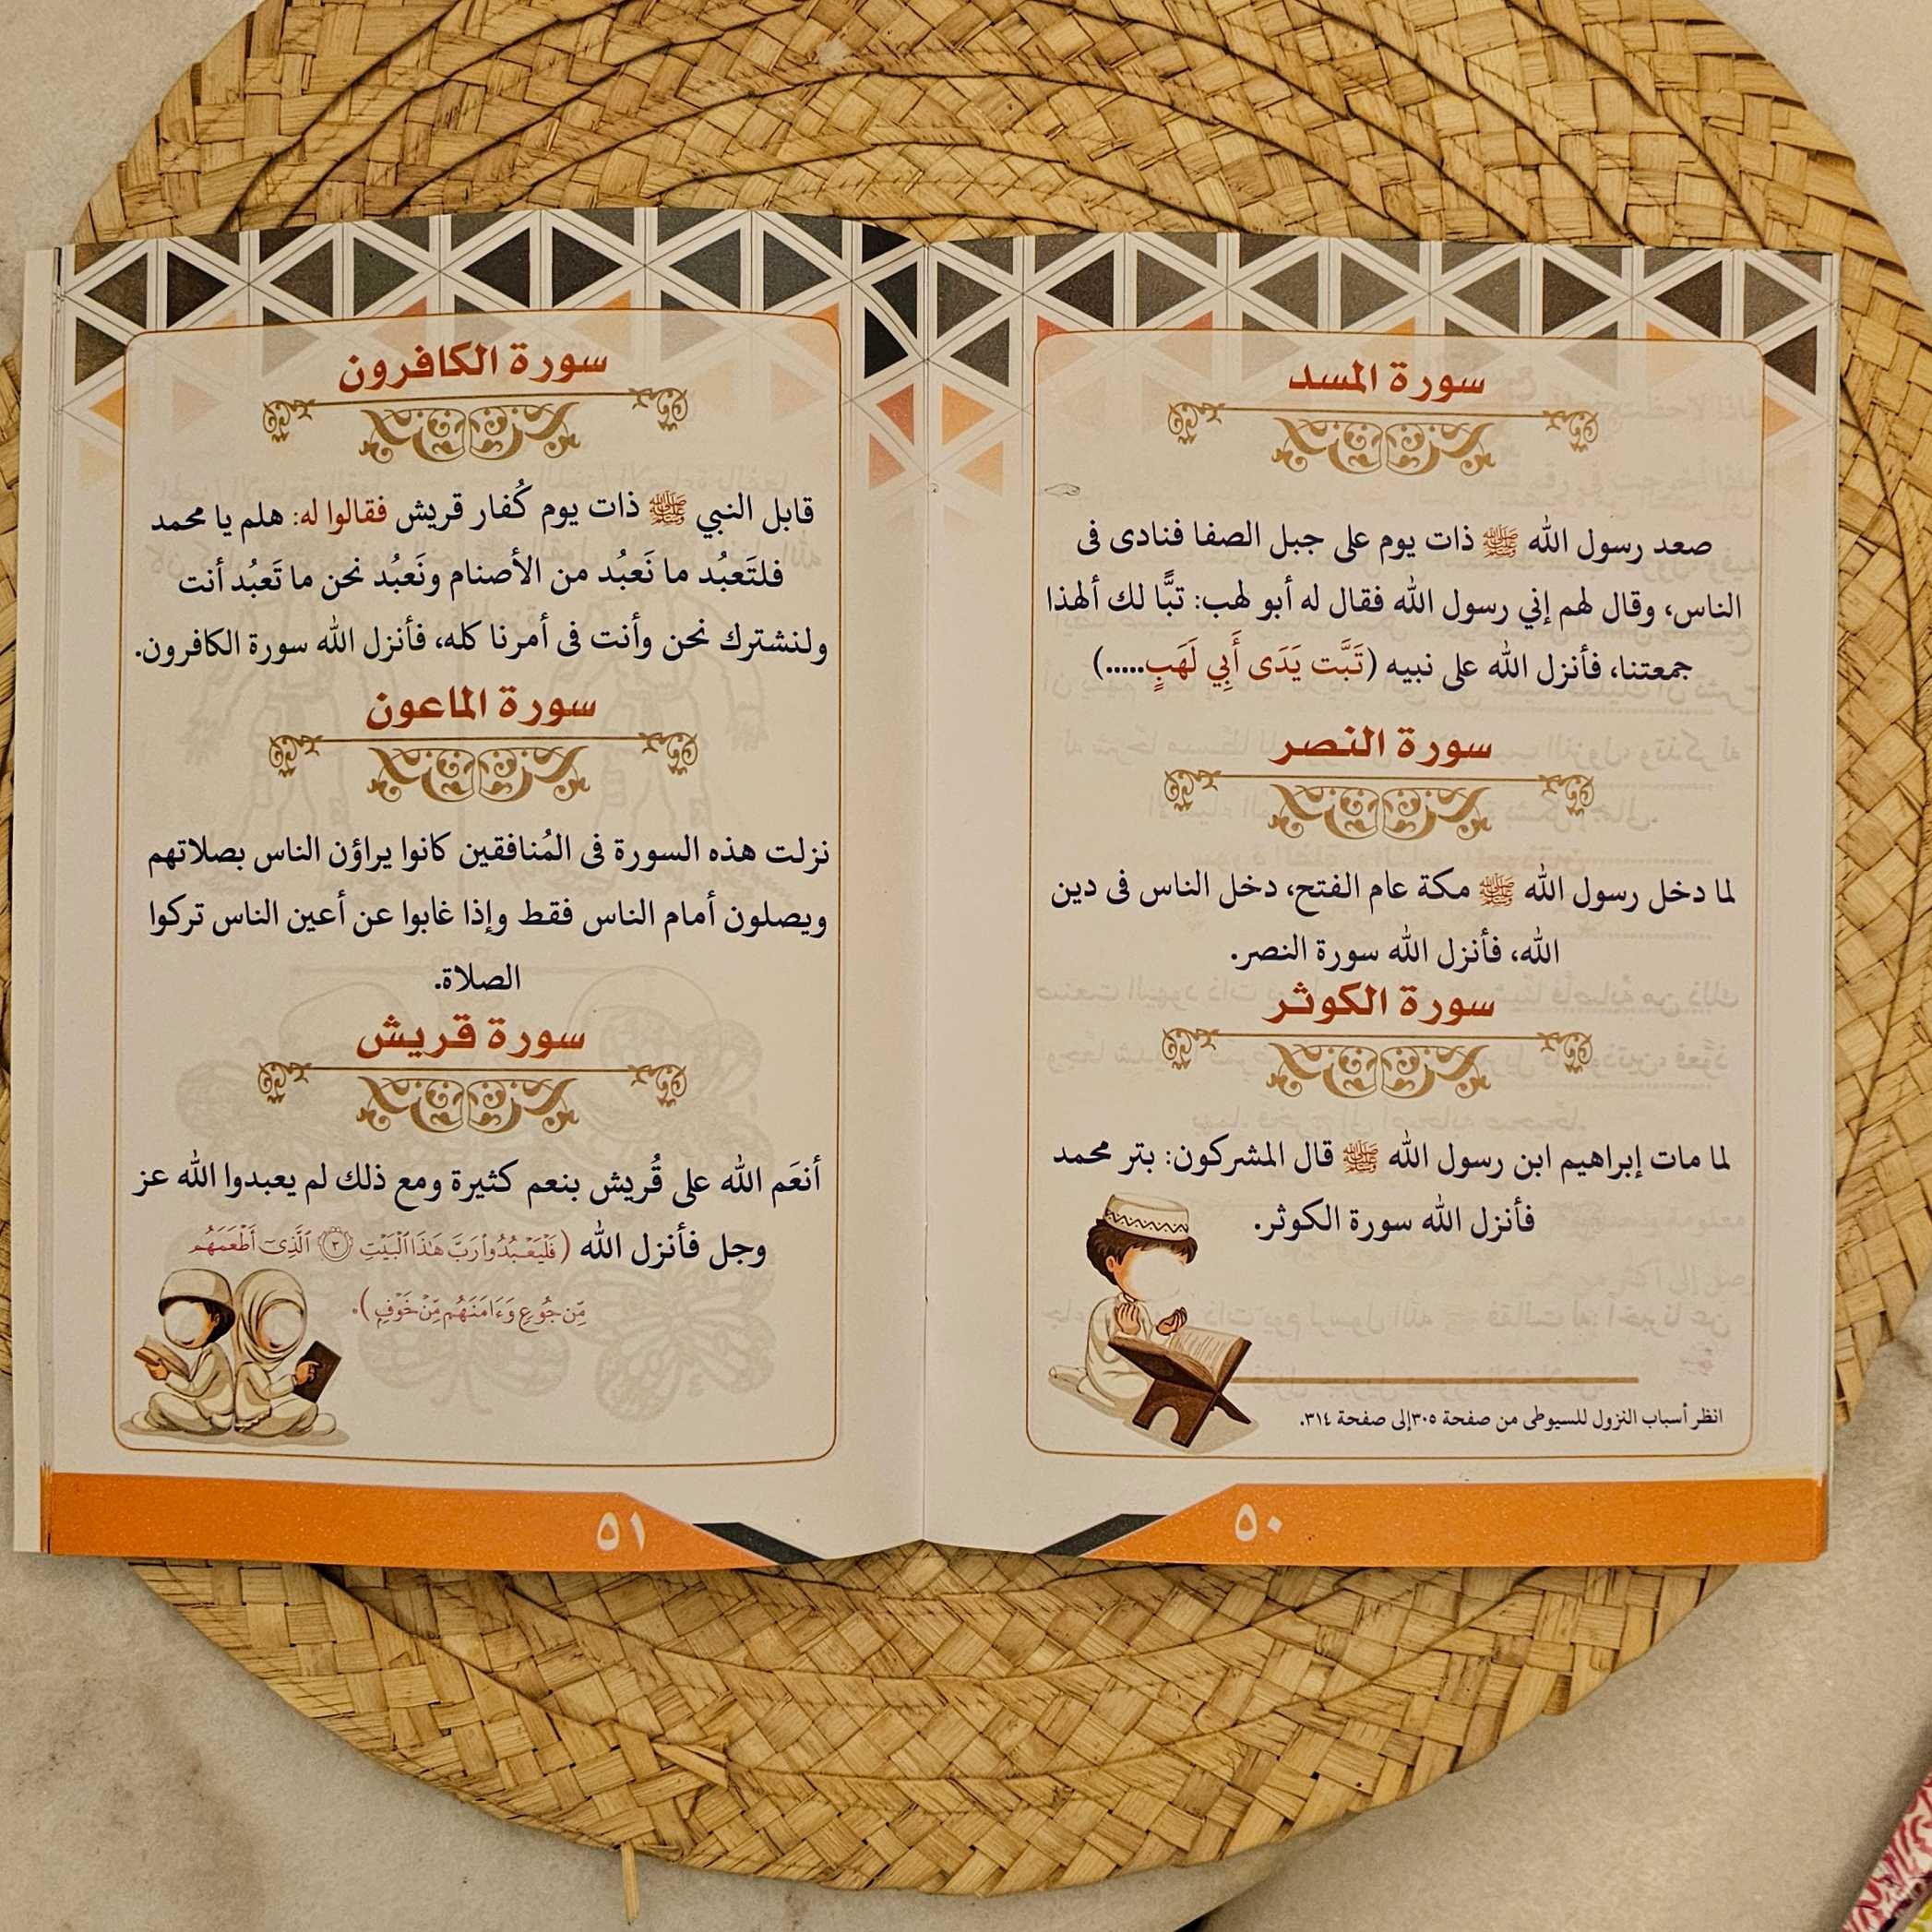 سورة المسد
صعد رسول الله ﷺ ذات يوم على جبل الصفا فنادى فى
الناس، وقال لهم إني رسول الله فقال له أبو لهب: تبًّا لك ألهذا
جمعتنا، فأنزل الله على نبيه (تَبَّت يَدَى أَبِي لَهَبٍ.....)
سورة النصر
لما دخل رسول الله ﷺ مكة عام الفتح، دخل الناس فى دين
الله، فأنزل الله سورة النصر.
سورة الكوثر
لما مات إبراهيم ابن رسول الله ﷺ قال المشركون: بتر محمد
فأنزل الله سورة الكوثر.
انظر أسباب النزول للسيوطى من صفحة ٣٠٥إلى صفحة ٣١٤.
٥٠
سورة الكافرون
قابل النبي ﷺ ذات يوم كُفار قريش فقالوا له: هلم يا محمد
فلتَعبُد ما نَعبُد من الأصنام ونَعبُد نحن ما تَعبُد أنت
ولنشترك نحن وأنت فى أمرنا كله، فأنزل الله سورة الكافرون.
سورة الماعون
نزلت هذه السورة فى المُنافقين كانوا يراؤن الناس بصلاتهم
ويصلون أمام الناس فقط وإذا غابوا عن أعين الناس تركوا
الصلاة.
سورة قريش
أنعَم الله على قُريش بنعم كثيرة ومع ذلك لم يعبدوا الله عز
وجل فأنزل الله (فَلْيَعْبُدُوا۟ رَبَّ هَـٰذَا ٱلْبَيْتِ ﴿٣﴾ ٱلَّذِىٓ أَطْعَمَهُم
مِّن جُوعٍ وَءَامَنَهُم مِّنْ خَوْفٍ).
٥١